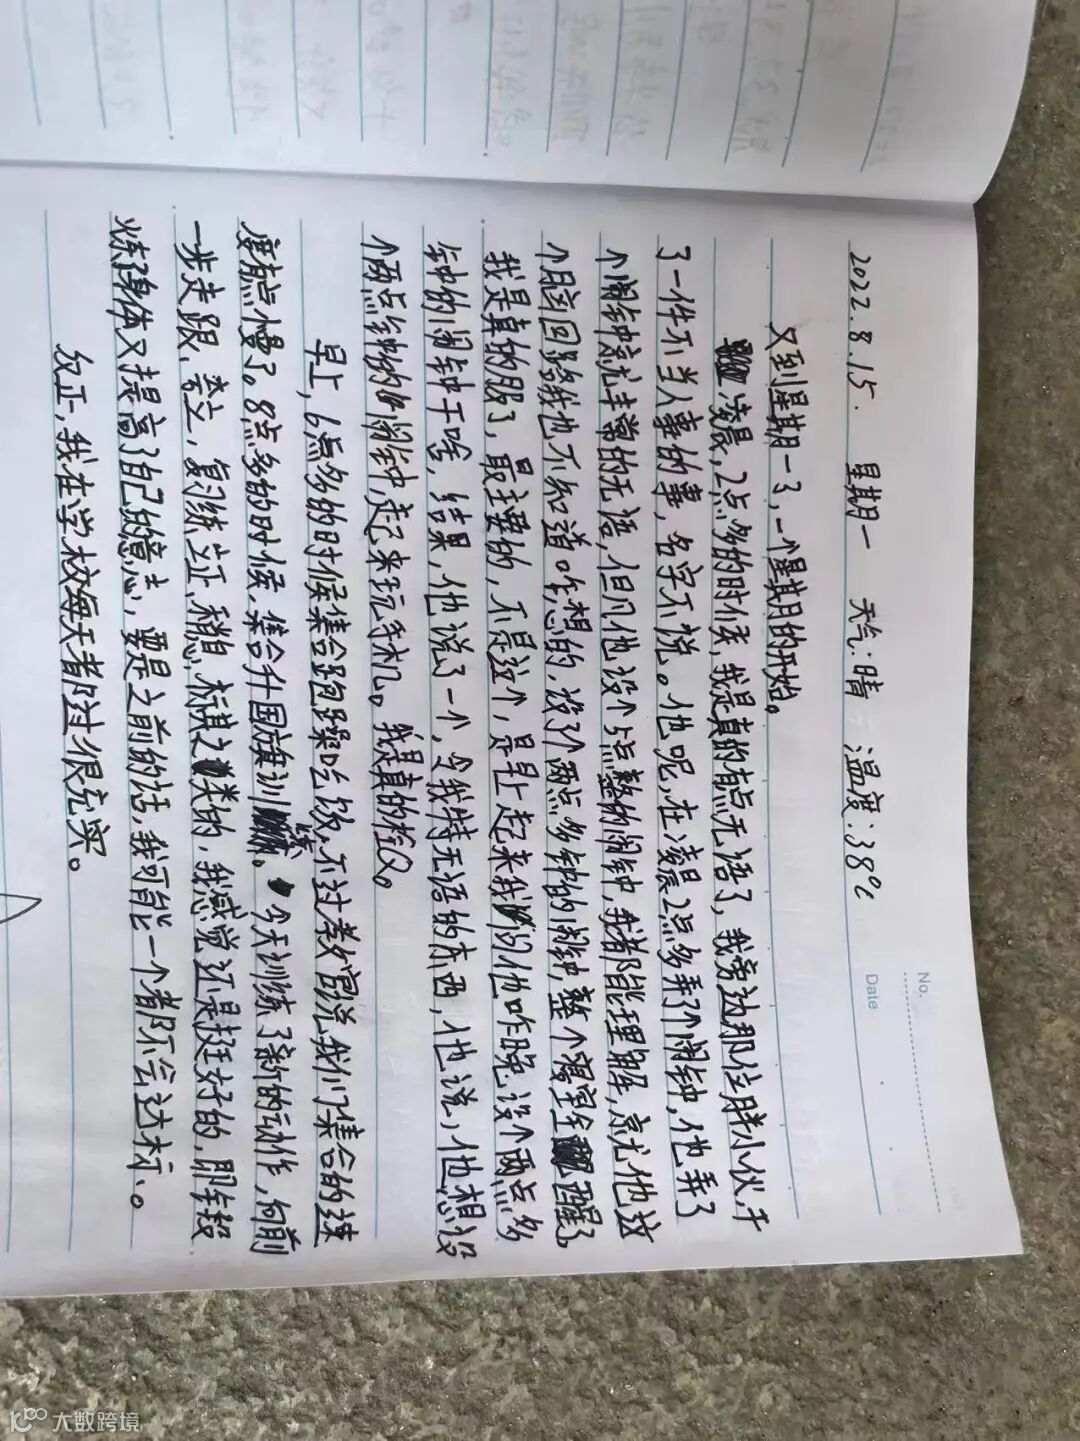 No.
Date
2022.8.15. 星期一 天气:晴 温度:38℃
又到星期一了,一个星期的开始。
凌晨,2点多的时候,我是真的有点无语了,我旁边那位胖小伙,干
了一件不当人事的事,名字不说。他呢,在凌晨2点多弄了个闹钟,他弄了
个闹钟就非常的无语,但凡他设个5点整的闹钟,我都能理解,就他这
个脑回路我也不知道咋想的,设了个两点多钟的闹钟,整个寝室全醒了。
我是真的服了,最主要的,不是这个,是早上起来我问他咋晚设个两点多
钟的闹钟干啥,结果,他说了一个,令我特无语的东西,他说,他想设
个两点钟的闹钟,起来玩手机。我是真的栓Q。
早上,6点多的时候集合跑躁吃饭,不过教官说我们集合的速
度有点慢了。8点多的时候,集合升国旗训练。今天训练了新的动作,向前
一步走,跟,跨立,复习练立正,稍息,标棋之类的,我感觉还是挺好的,即锻
炼了身体又提高了自己的意志,要是之前的话,我可能一个都不会达标、。
反正,我在学校每天都过很充实。
大数跨境